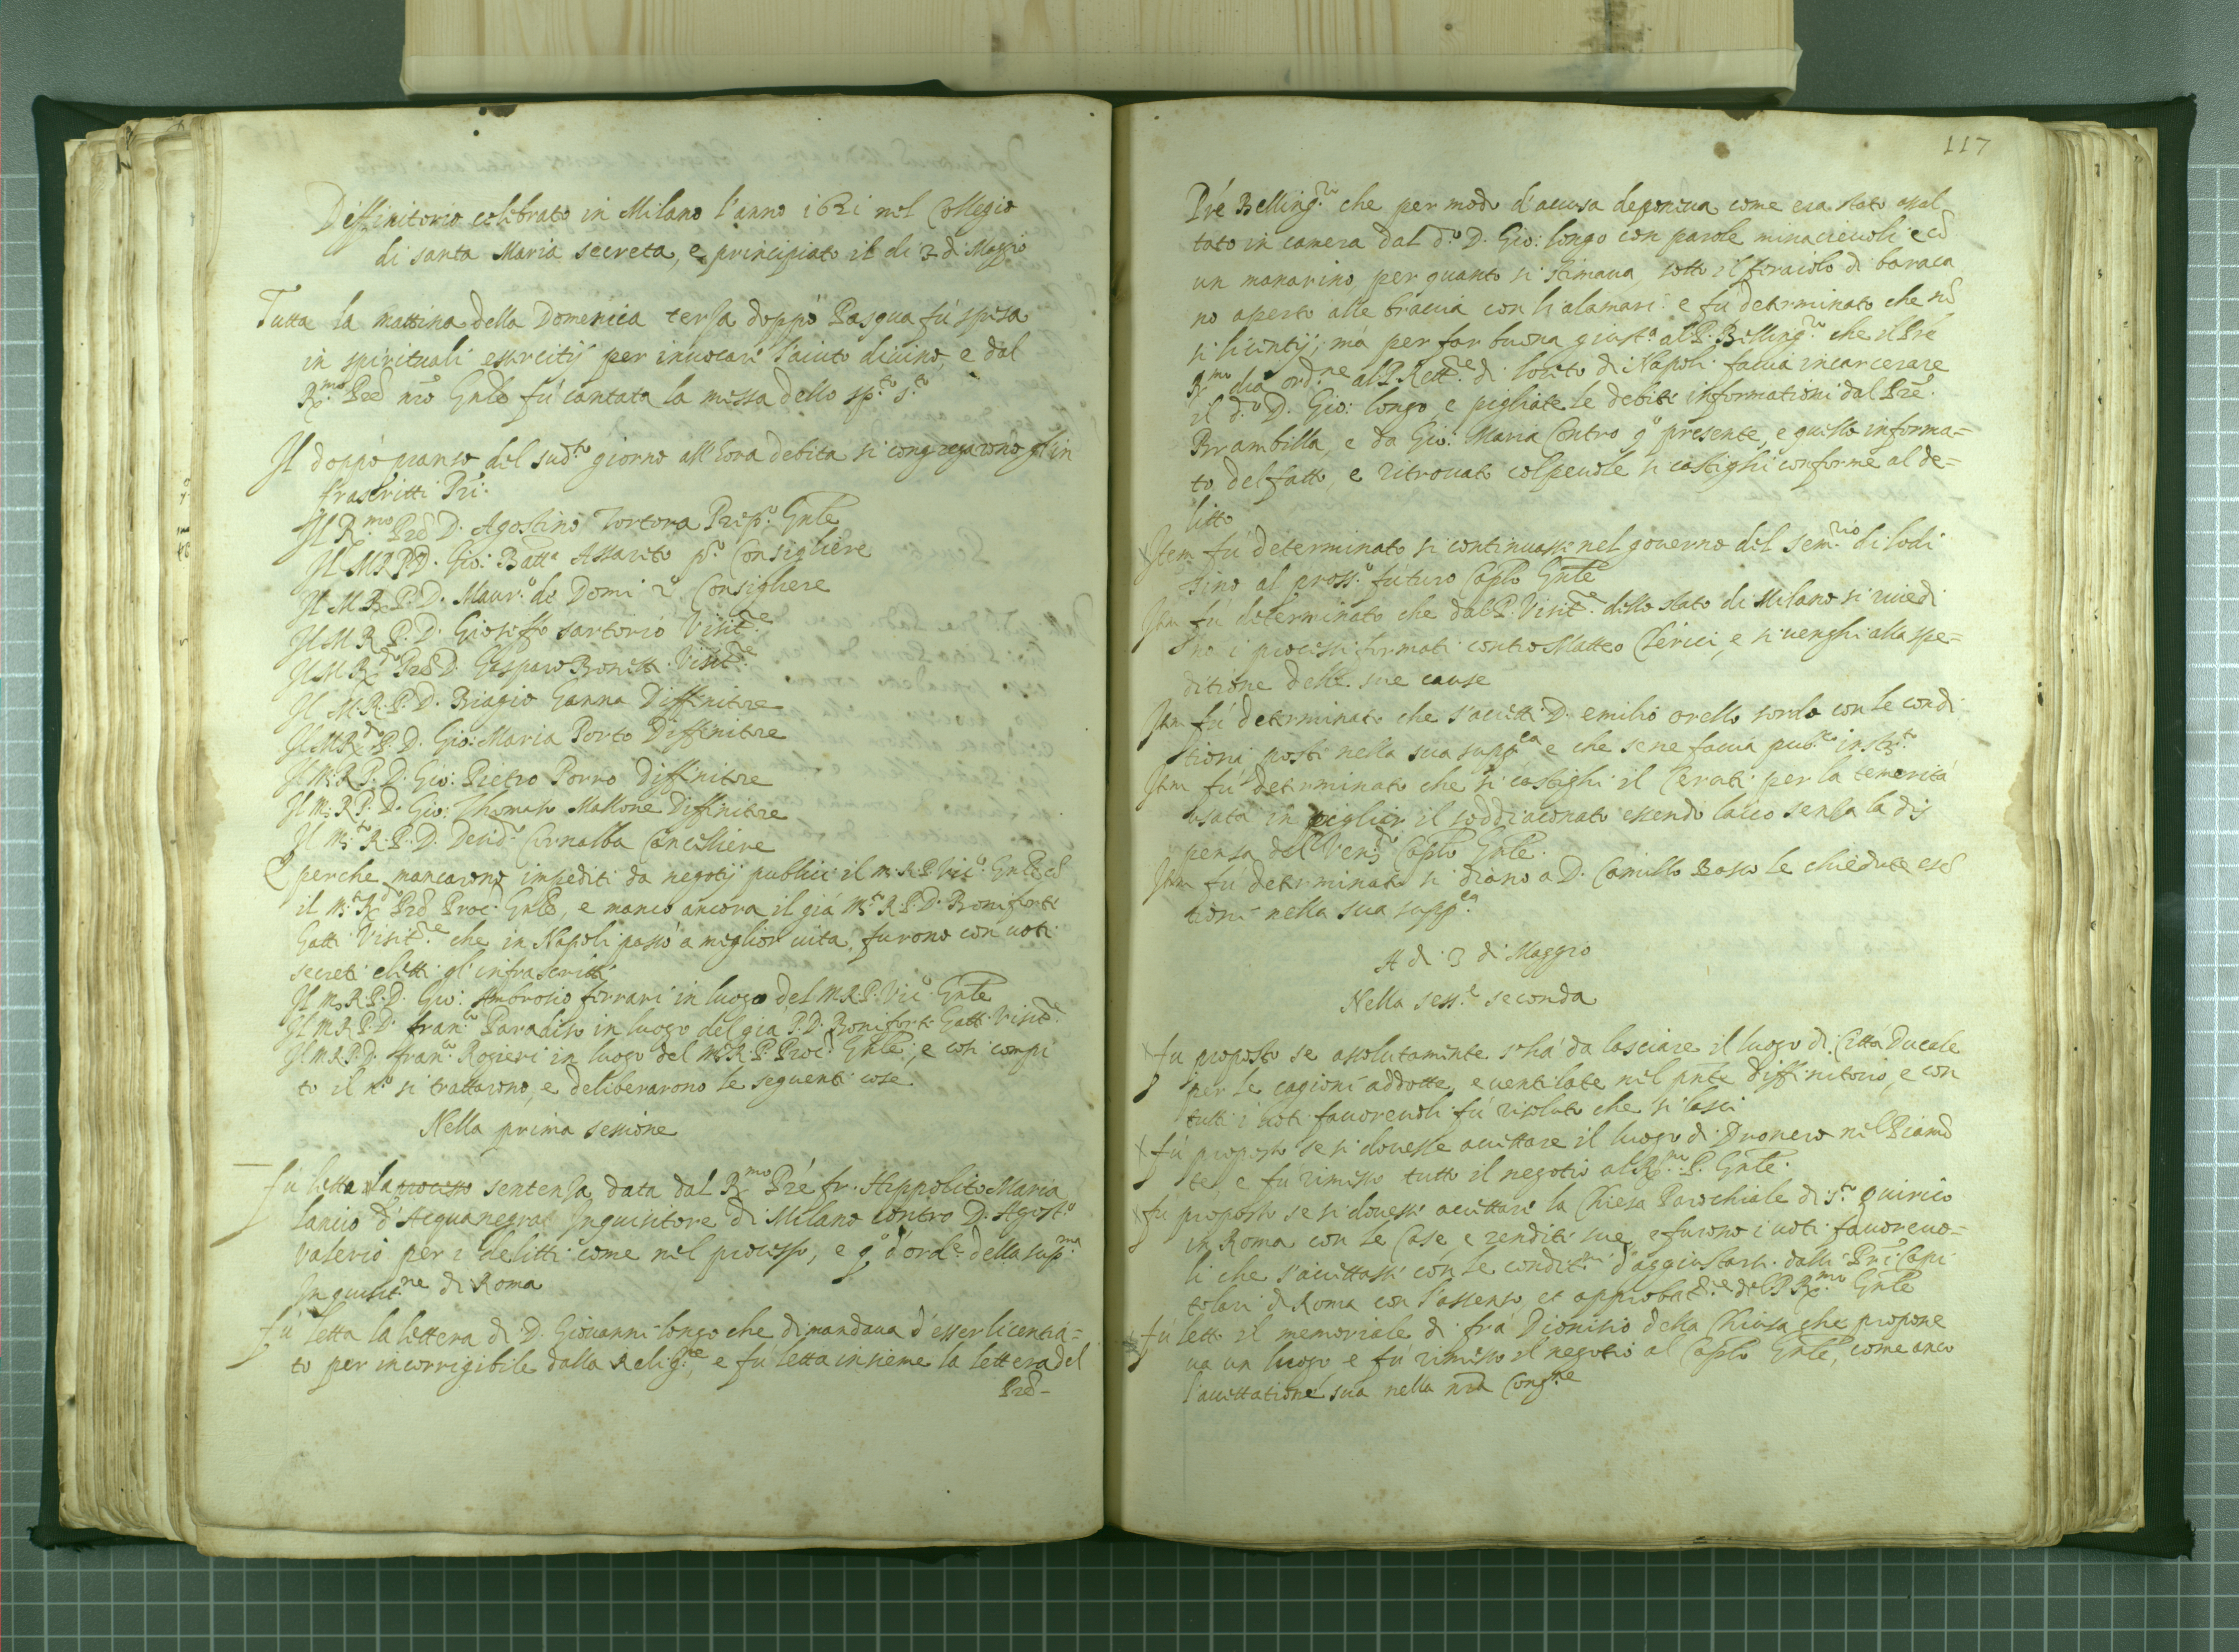 Diffinitorio celebrato in Milano l'anno 1621 nel Collegio
di santa Maria secreta, e principiato il di 3 di Maggio
Tutta la mattina della Domenica terza doppò Pasqua fù spesa
in spirituali essercitij per invocare l'aiuto divino, e dal
R.mo Pre nro Gnle fù cantata la messa dello sp.to s.to
Il doppò pranso del sud.to giorno all'hora debita si congregarono gl'in
frascritti Pri:
Il R.mo Pre D. Agostino Tortora Prep.o Gnle
Il M R P D. Gio: Batta Assareto p.o Consigliere
Il M. R. P. D. Maur.o de Domi 2.o Consigliere
Il M R P. D. Gioseffo sartorio Visit.re
Il M R.do Pre D. Gasparo Bonetti Visit.re
Il M. R. P. D. Biagio Ganna Diffinitre
Il M R.do P. D. Gio: Maria Porto Diffinitre
Il M. R P. D. Gio: Pietro Porro Diffinitore
Il M. R P. D. Gio: Thomaso Mallone Diffinitre
Il M.to R. P. D. Desid.o Cornalba Cancelliere
E perche mancarono impediti da negotij publici il m. R P Vic.o Gnle cō
il M.to R.do Pre Proc. Gnle, e mancò ancora il già M.to R. P. D. Boniforte
Gatti Visit.re che in Napoli passò a miglior vita, furono con voti
secreti eletti gl'infrascritti
Il M. R. P. D. Gio: Ambrosio ferrari in luogo del M. R. P. Vic.o Gnle
Il M R P. D. fran.co Paradiso in luogo del già P. D. Boniforte Gatti Visit.re
Il M. R P. D. fran.co Rogieri in luogo del M.to R. P. Proc. Gnle; e così compi
to il n.o si trattarono, e deliberarono le seguenti cose
Nella prima sessione
fù letta la processo sentenza data dal R.mo Prè fr. Hippolito Maria
Lancio d'Acquanegra Inquisitore di Milano contro D. Agost.o
Valerio per i delitti come nel processo, e q.o d'ord.e della sup.ma
Inquisit.ne di Roma
fù letta la lettera di D. Giovanni longo che dimandava d'esser licentia=
to per incorrigibile dalla Relig.ne, e fu letta insieme la lettera del
Pre-
117
Prè Belling.ri che per modo d'accusa deponeva come era stato assal
tato in camera dal d.o D. Gio: longo con parole minaccievoli, e cō
un manarino, per quanto si stimava, sotto il feraiolo di baraca
no aperto alle braccia con li alamari: e fu determinato che nō
si licentij, mà per far buona giust.a al P. Belling.ri che il Prè
R.mo dia ord.ne al P. Rett.re di loreto di Napoli faccia incarcerare
il d.o D. Gio: longo, e pigliate le debite informationi dal Pre.
Brambilla, e da Gio: Maria Contro q.o presente, e quello informa=
to del fatto, e ritrovato colpevole si castighi conforme al de=
litto
Item fu determinato si continuasse nel governo del sem.rio di lodi
sino al pross.o futuro Caplo Gnle
Item fu determinato che dal P. Visit.re dello stato di Milano si riuedi
no i processi formati contro Matteo Clerici, e si venghi alla spe=
ditione delle sue cause
Item fù determinato che s'accetti D. emilio orello sordo con le condi
tioni poste nella sua supp.ca e che se ne faccia pub.co instr.to
Item fù determinato che si castighi il Cerati per la temerità
usata in pigliar il soddiaconato essendo laico senza la dis
pensa del Ven.do Caplo Gnle.
Item fù determinato si diano a D. Camillo Basco le chiedute esē
tioni nella sua supp.ca
A di 3 di Maggio
Nella sess.e seconda
fù proposto se assolutamente s'hà da lasciare il luogo di Città Ducale
per le cagioni addotte, e ventilate nel pnte Diffinitorio, e con
tutti i voti favorevoli fù risoluto che si lasci
fù proposto se si dovesse accettare il luogo di Dronero nel Piamō
te, e fu rimesso tutto il negotio al R.mo P. Gnle.
fù proposto se si dovesse accettare la Chiesa Parochiale di s.to Quirico
in Roma con le Case e rendite sue, e furono i voti favorevo=
li che s'accettasse con le condit.ni d'aggiustarsi dalli Pri Capi
tolari di Roma con l'assenso et approbat.ne del P R.mo Gnle
fù letto il memoriale di frà Dionisio della Chiusa che propone
va un luogo e fù rimesso il negotio al Caplo Gnle, come anco
l'accettatione sua nella nra Cong.ne